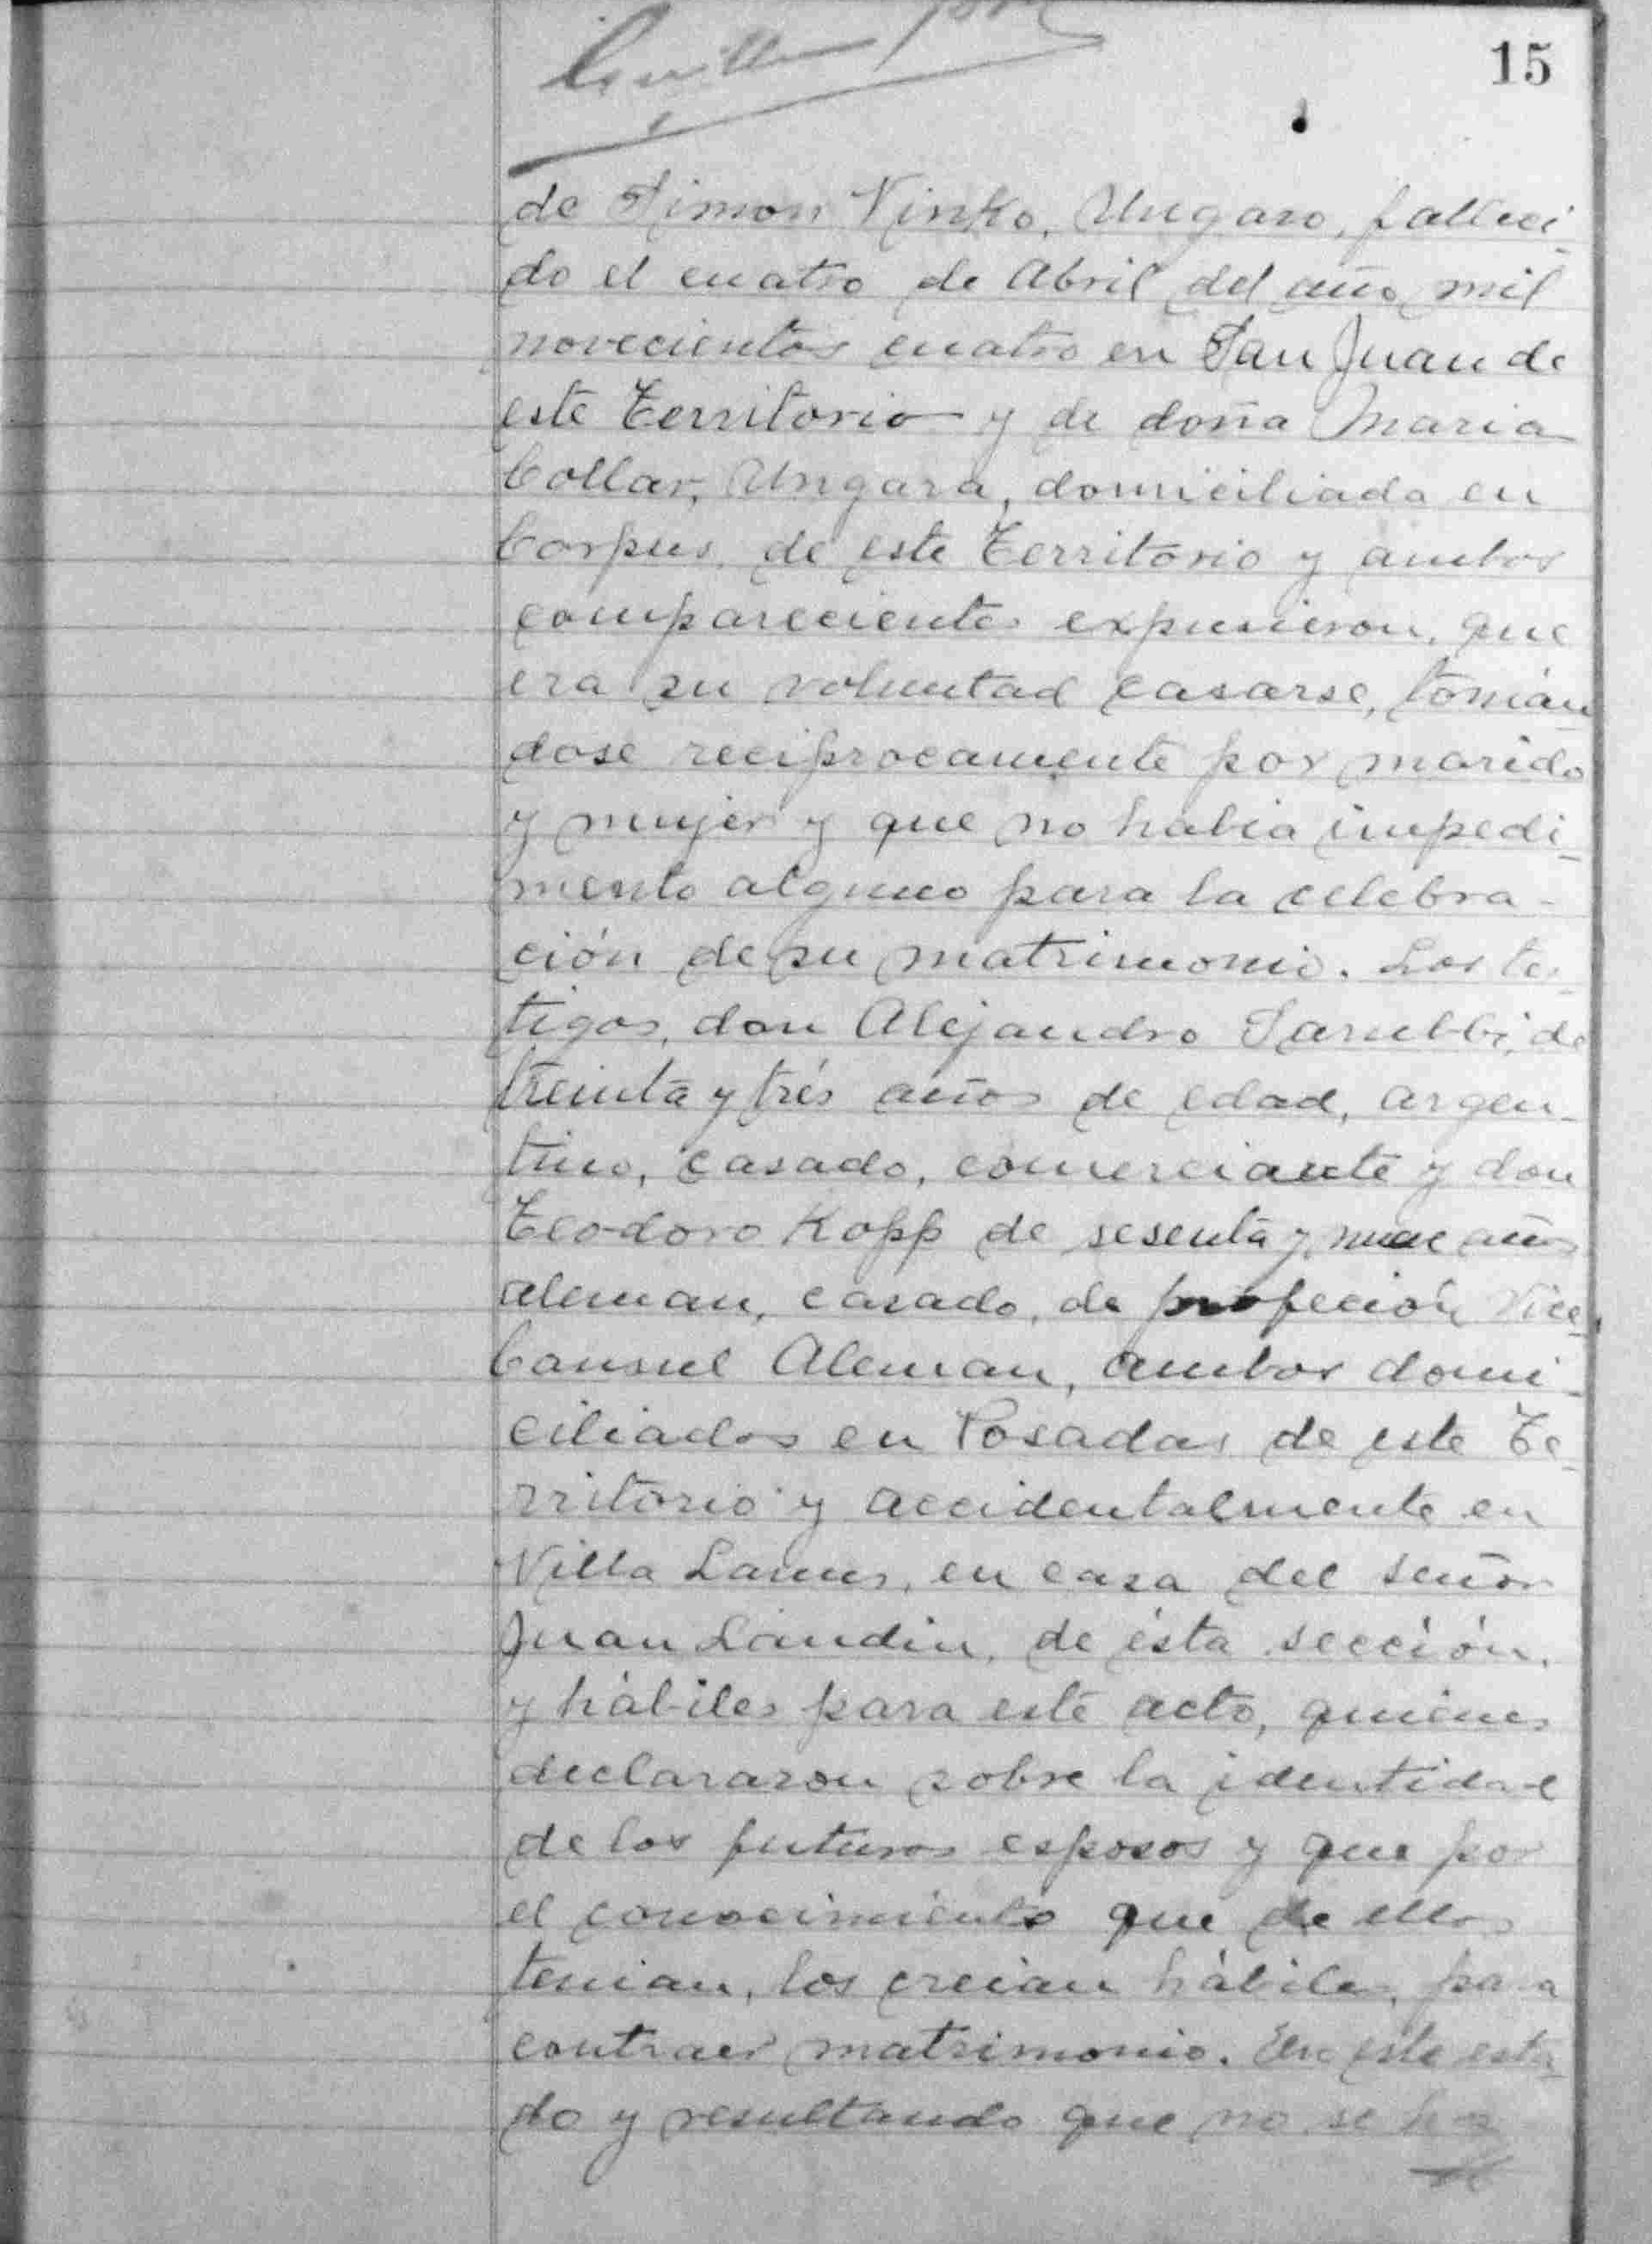 15
de Simon Vinko, Ungaro, falleci-
do el cuatro de Abril del año mil
novecientos cuatro en San Juan de
este Territorio y de doña Maria
Collar, Ungara, domiciliada en
Corpus, de este Territorio y ambos
comparecientes expusieron, que
era su voluntad casarse, tomán
dose reciprocamente por marido
y mujer y que no habia impedi-
mento alguno para la celebra-
ción de su matrimonio. Los tes-
tigos, don Alejandro Sarubbi, de
treinta y trés años de edad, argen-
tino, casado, comerciante y don
Teodoro Kopp de sesenta y nueve años
aleman, casado, de profeción Vice
Consul Aleman, ambos domi-
ciliados en Posadas de este Te-
rritorio y accidentalmente en
Villa Lanus, en casa del señor
Juan Landin, de ésta sección,
y hábiles para este acto, quienes
declararon sobre la identidad
de los futuros esposos y que por
el conocimiento que de ellos
tenian, los creian hábiles para
contraer matrimonio. En este esta-
do y resultando que no se ha